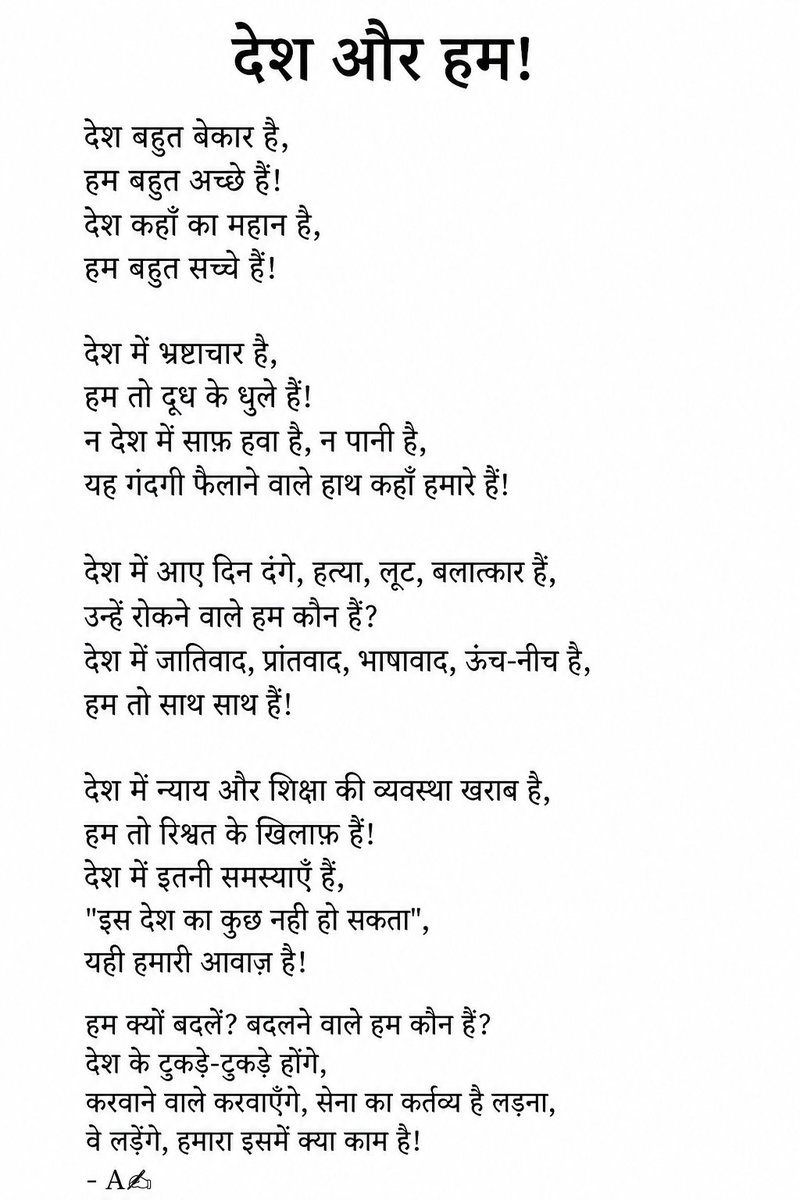 देश और हम!
देश बहुत बेकार है,
हम बहुत अच्छे हैं!
देश कहाँ का महान है,
हम बहुत सच्चे हैं!
देश में भ्रष्टाचार है,
हम तो दूध के धुले हैं!
न देश में साफ़ हवा है, न पानी है,
यह गंदगी फैलाने वाले हाथ कहाँ हमारे हैं!
देश में आए दिन दंगे, हत्या, लूट, बलात्कार हैं,
उन्हें रोकने वाले हम कौन हैं?
देश में जातिवाद, प्रांतवाद, भाषावाद, ऊंच-नीच है,
हम तो साथ साथ हैं!
देश में न्याय और शिक्षा की व्यवस्था खराब है,
हम तो रिश्वत के खिलाफ़ हैं!
देश में इतनी समस्याएँ हैं,
"इस देश का कुछ नही हो सकता",
यही हमारी आवाज़ है!
हम क्यों बदलें? बदलने वाले हम कौन हैं?
देश के टुकड़े-टुकड़े होंगे,
करवाने वाले करवाएँगे, सेना का कर्तव्य है लड़ना,
वे लड़ेंगे, हमारा इसमें क्या काम है!
- A✍